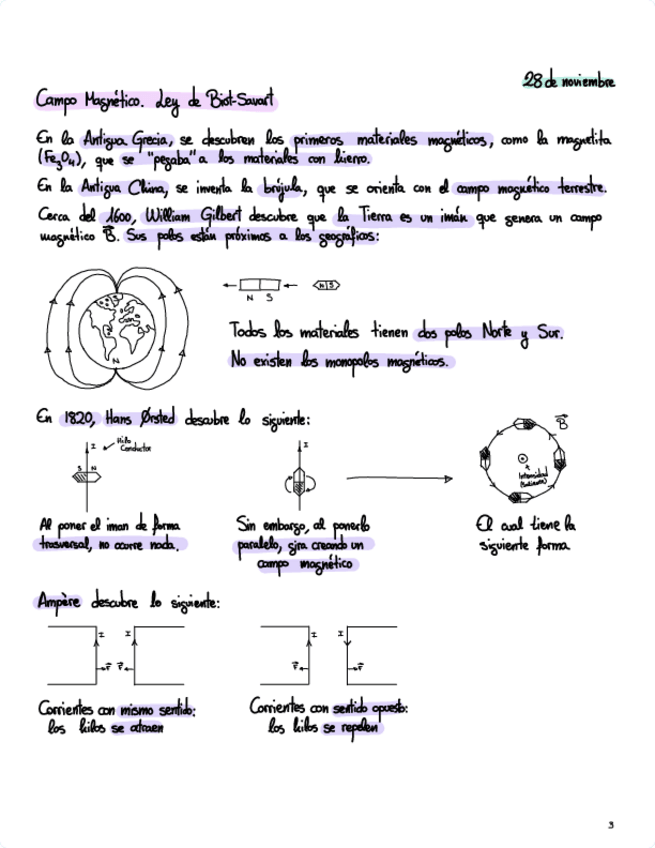 28 de noviembre
Campo Magnético. Ley de Biot-Savart
En la Antigua Grecia, se descubren los primeros materiales magnéticos, como la magnetita
(Fe₃O₄), que se "pegaba" a los materiales con hierro.
En la Antigua China, se inventa la brújula, que se orienta con el campo magnético terrestre.
Cerca del 1600, William Gilbert descubre que la Tierra es un imán que genera un campo
magnético B⃗. Sus polos están próximos a los geográficos:
S
N
N S
N S
Todos los materiales tienen dos polos Norte y Sur.
No existen los monopolos magnéticos.
En 1820, Hans Ørsted descubre lo siguiente:
I Hilo
Conductor
S N
I
B⃗
Intensidad
(Saliente)
Al poner el iman de forma
trasversal, no ocurre nada.
Sin embargo, al ponerlo
paralelo, gira creando un
campo magnético
El cual tiene la
siguiente forma
Ampère descubre lo siguiente:
I I
F⃗ F⃗
I I
F⃗ F⃗
Corrientes con mismo sentido:
los hilos se atraen
Corrientes con sentido opuesto:
los hilos se repelen
3